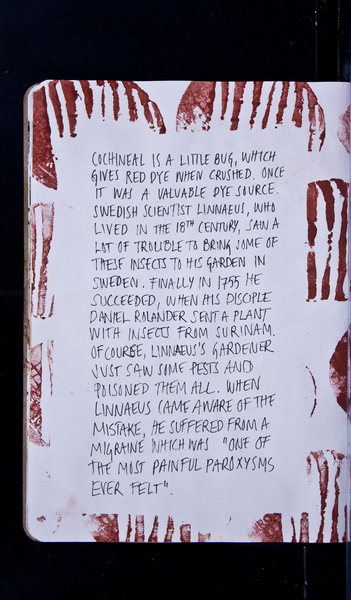 COCHINEAL IS A LITTLE BUG, WHICH
GIVES RED DYE WHEN CRUSHED. ONCE
IT WAS A VALUABLE DYE SOURCE.
SWEDISH SCIENTIST LINNAEUS, WHO
LIVED IN THE 18TH CENTURY, SAW A
LOT OF TROUBLE TO BRING SOME OF
THESE INSECTS TO HIS GARDEN IN
SWEDEN. FINALLY IN 1755 HE
SUCCEEDED, WHEN HIS DISCIPLE
DANIEL ROLANDER SENT A PLANT
WITH INSECTS FROM SURINAM.
OFCOURSE, LINNAEUS'S GARDENER
JUST SAW SOME PESTS AND
POISONED THEM ALL. WHEN
LINNAEUS CAME AWARE OF THE
MISTAKE, HE SUFFERED FROM A
MIGRAINE WHICH WAS "ONE OF
THE MOST PAINFUL PAROXYSMS
EVER FELT".